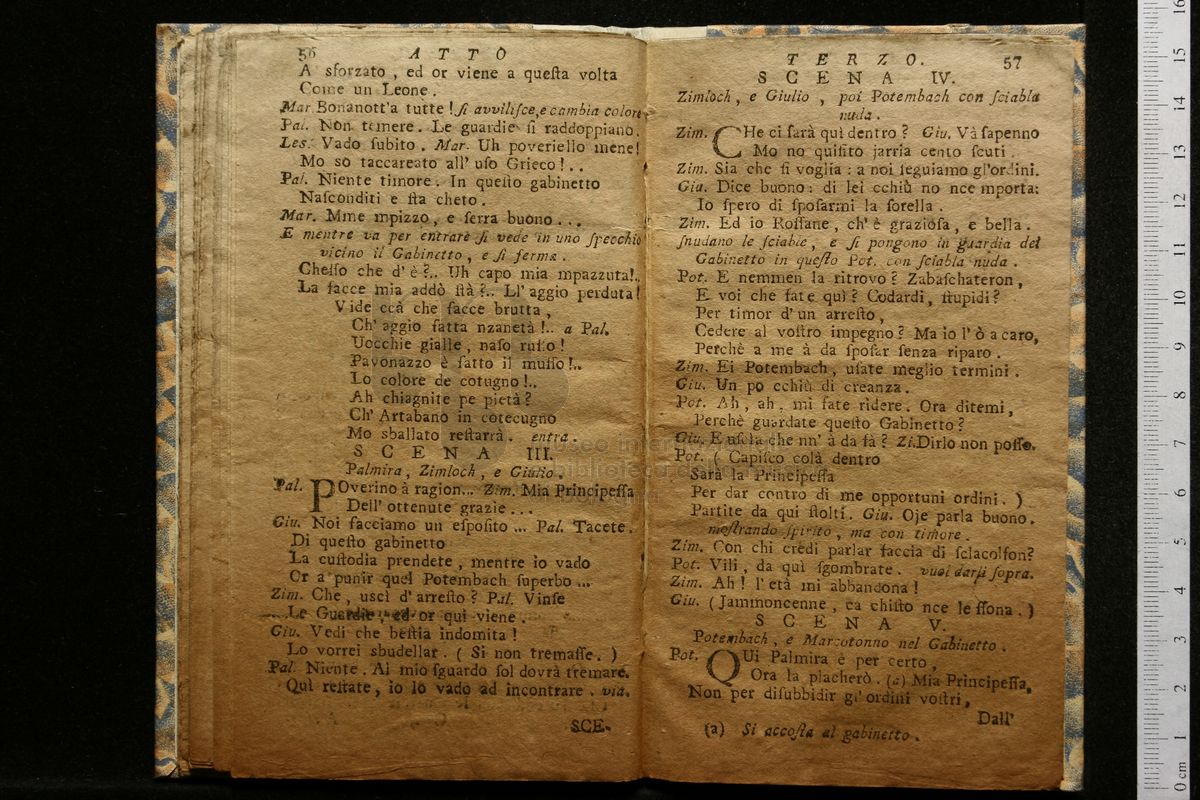 56 ATTO
A sforzato , ed or viene a questa volta
Come un Leone .
Mar. Bonanott'a tutte ! si avvilisce, e cambia colore
Pal. Non temere . Le guardie si raddoppiano .
Les. Vado subito . Mar. Uh poveriello mene !
Mo so taccareato all' uso Grieco ! . .
Pal. Niente timore . In questo gabinetto
Nasconditi e sta cheto .
Mar. Mme mpizzo , e serra buono . . .
E mentre va per entrare si vede in uno specchio
vicino il Gabinetto , e si ferma .
Chesso che d' è ?.. Uh capo mia mpazzuta !..
La facce mia addò stà ?.. Ll' aggio perduta !
Vide ccà che facce brutta ,
Ch' aggio fatta nzanetà !.. a Pal.
Uocchie gialle , naso russo !
Pavonazzo è fatto il musso !..
Lo colore de cotugno !..
Ah chiagnite pe pietà ?
Ch' Artabano in cotecugno
Mo sballato restarrà . entra .
SCENA III.
Palmira , Zimloch , e Giulio .
Pal. POverino à ragion... Zim. Mia Principessa
Dell' ottenute grazie . . .
Giu. Noi facciamo un esposito ... Pal. Tacete .
Di questo gabinetto
La custodia prendete , mentre io vado
Or a punir quel Potembach superbo ...
Zim. Che , uscì d' arresto ? Pal. Vinse
Le Guardie , ed or qui viene .
Giu. Vedi che bestia indomita !
Lo vorrei sbudellar . ( Si non tremasse . )
Pal. Niente . Al mio sguardo sol dovrà tremare .
Qui restate , io lo vado ad incontrare . via .
SCE-
TERZO. 57
SCENA IV.
Zimloch , e Giulio , poi Potembach con sciabla
nuda .
Zim. CHe ci sarà quì dentro ? Giu. Và sapenno
Mo no quisito jarria cento scuti .
Zim. Sia che si voglia : a noi seguiamo gl'ordini.
Giu. Dice buono : di lei cchiù no nce mporta:
Io spero di sposarmi la sorella .
Zim. Ed io Rossane , ch' è graziosa , e bella .
snudano le sciable , e si pongono in guardia del
Gabinetto in questo Pot. con sciabla nuda .
Pot. E nemmen la ritrovo ? Zabaschateron ,
E voi che fate quì ? Codardi , stupidi ?
Per timor d' un arresto ,
Cedere al vostro impegno ? Ma io l' ò a caro,
Perchè a me à da sposar senza riparo .
Zim. Ei Potembach , usate meglio termini .
Giu. Un po cchiù di creanza .
Pot. Ah , ah , mi fate ridere . Ora ditemi ,
Perchè guardate questo Gabinetto ?
Giu. E uscia che nn' à da fà ? Zi.Dirlo non posso.
Pot. ( Capisco colà dentro
Sarà la Principessa
Per dar contro di me opportuni ordini . )
Partite da qui stolti . Giu. Oje parla buono .
mostrando spirito , ma con timore .
Zim. Con chi credi parlar faccia di sclacolfon?
Pot. Vili , da qui sgombrate . vuol darli sopra.
Zim. Ah ! l' età mi abbandona !
Giu. ( Jammoncenne , ca chisto nce le ssona . )
SCENA V.
Potembach , e Marcotonno nel Gabinetto .
Pot. QUi Palmira è per certo ,
Ora la placherò . (a) Mia Principessa,
Non per disubbidir gl' ordini vostri ,
Dall'
(a) Si accosta al gabinetto .